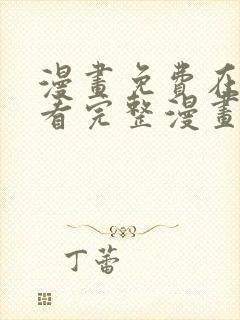 漫畫免費在
看完整漫畫
丁蕾